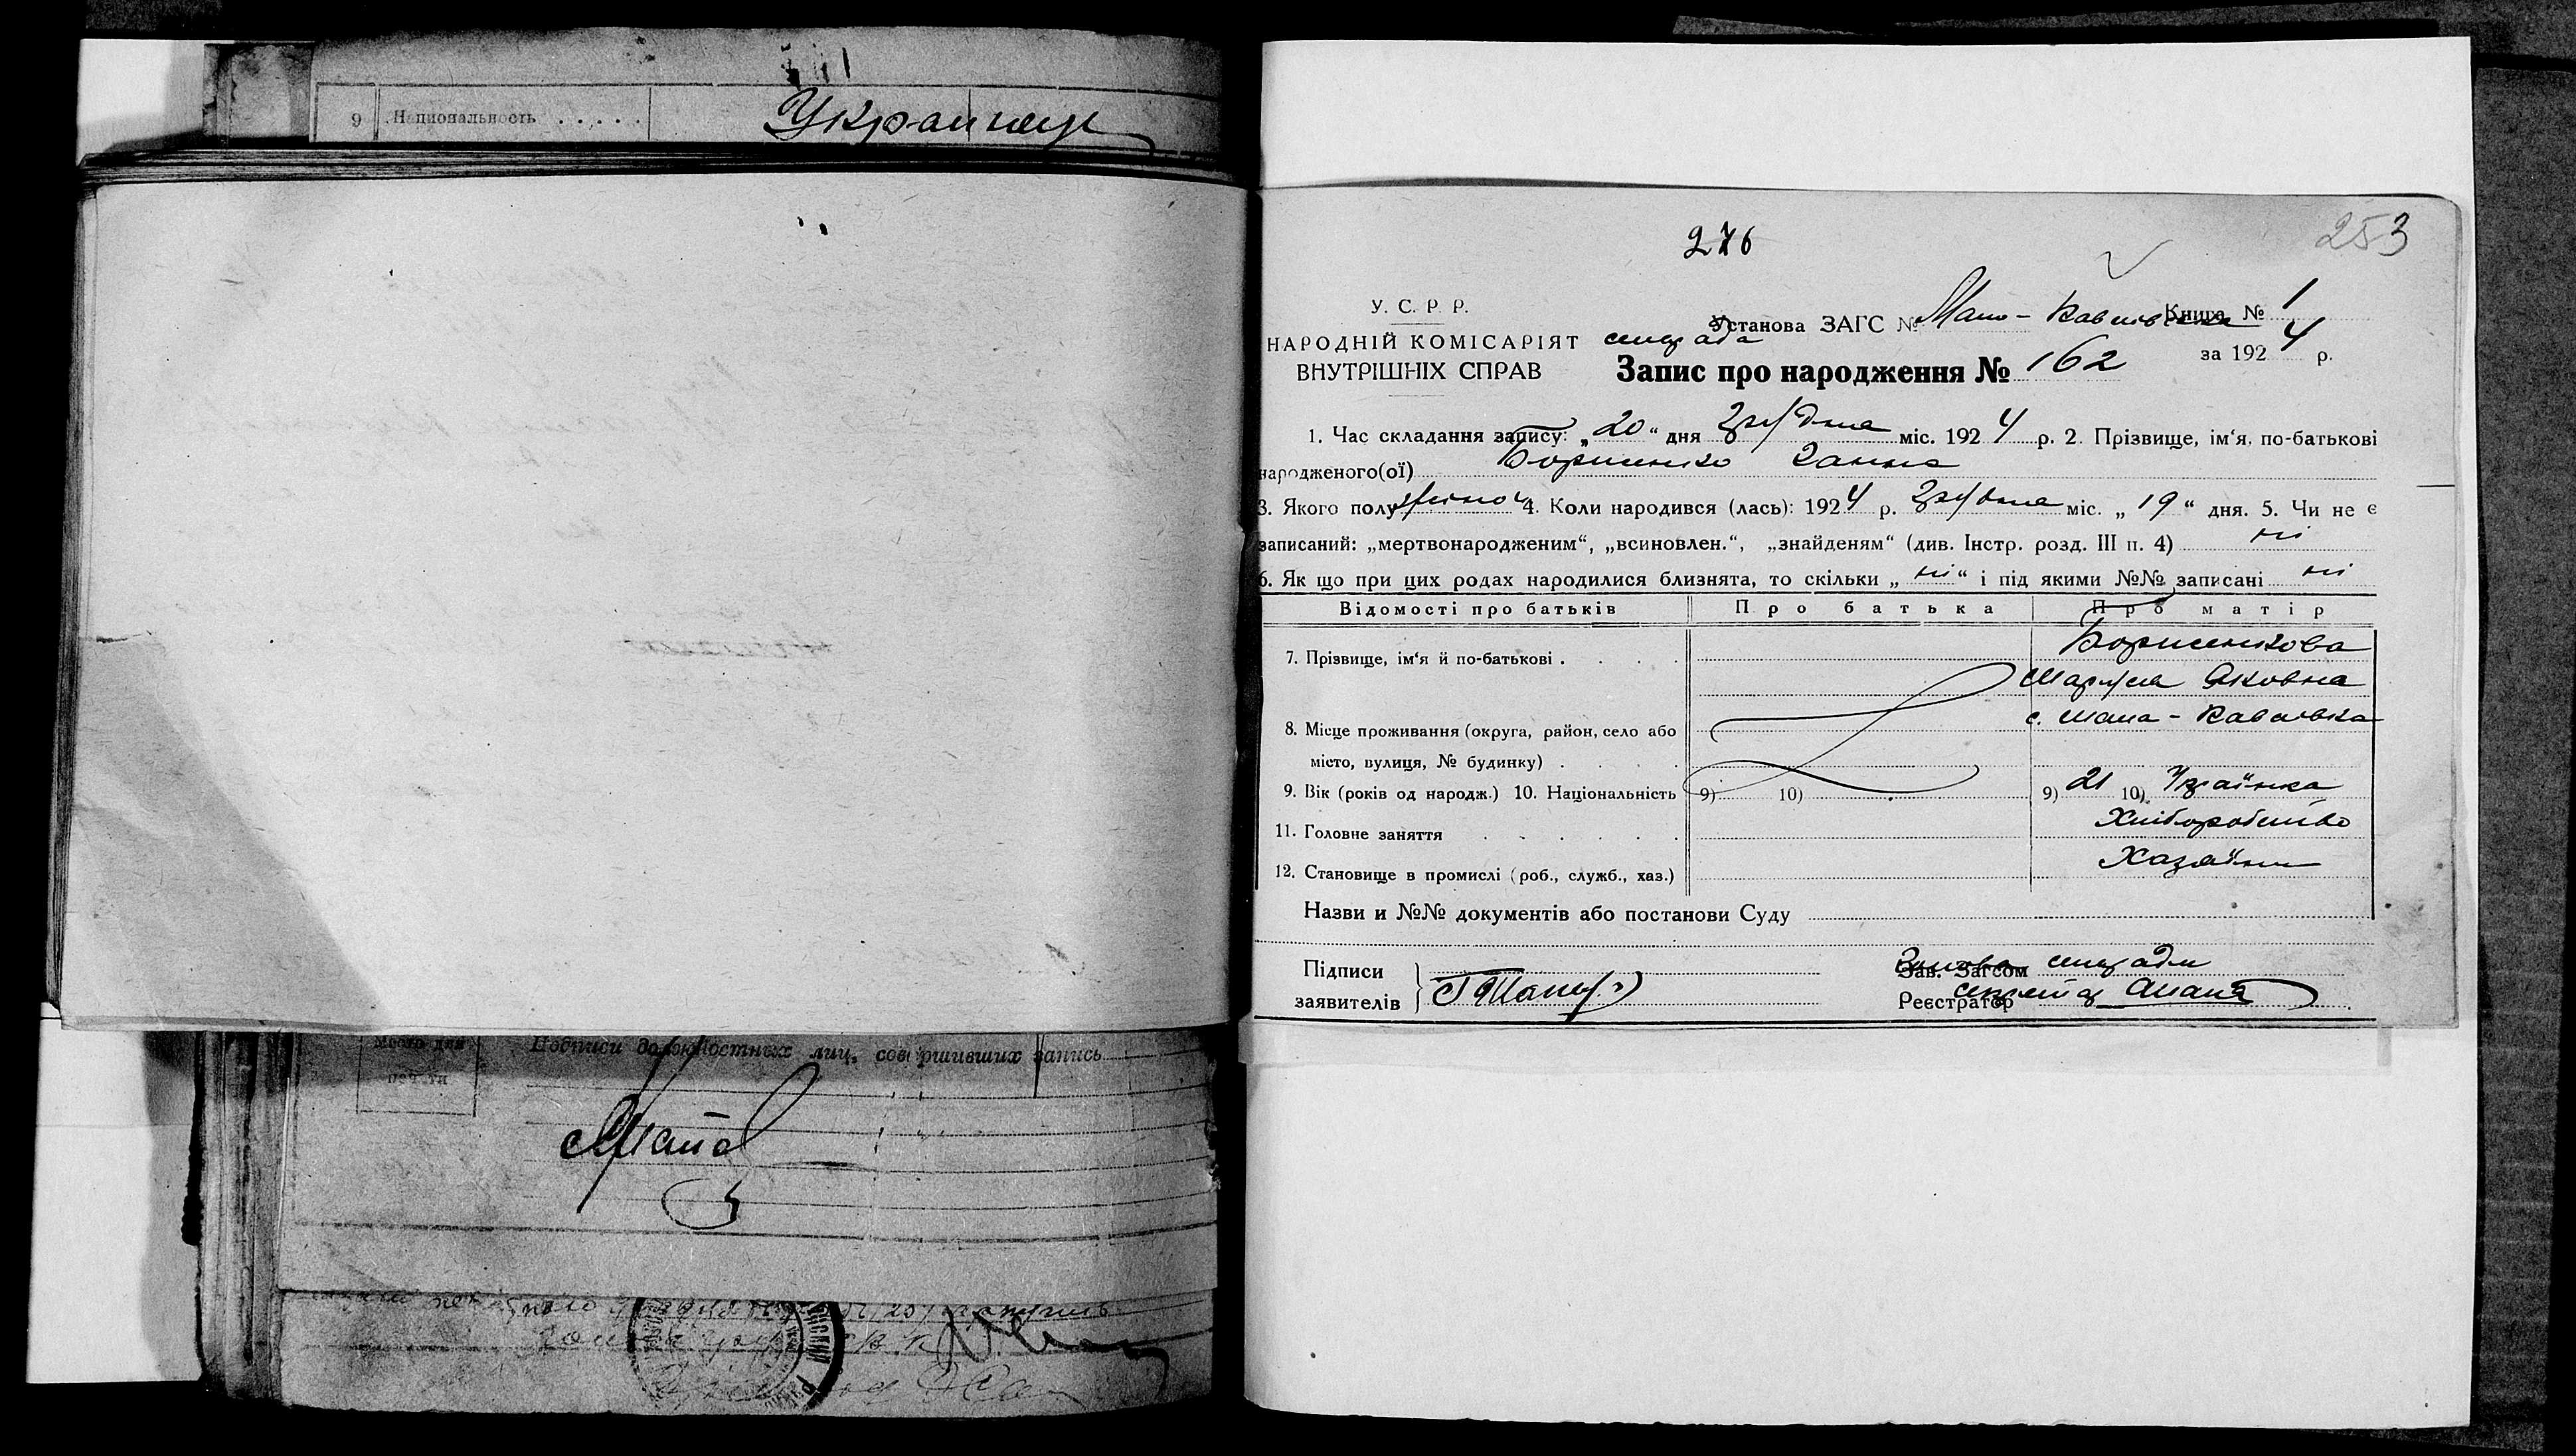 9 Национальность . . . . . Украинец
Подписи должностных лиц, совершивших запись
Место для
печати
276
253
У. С. Р. Р.
НАРОДНІЙ КОМІСАРІЯТ
ВНУТРІШНІХ СПРАВ
Установа ЗАГС № Мало-Павлівська Книга № 1
сельрада
Запис про народження № 162 за 1924 р.
1. Час складання запису: „20“ дня Грудня міс. 1924 р. 2. Прізвище, ім‘я, по-батькові
народженого(ої) Борисенко Ганна
3. Якого полу жіноч 4. Коли народився (лась): 1924 р. Грудня міс. „19“ дня. 5. Чи не є
записаний: „мертвонародженим“, „всиновлен.“, „знайденям“ (див. Інстр. розд. III п. 4) ні
6. Як що при цих родах народилися близнята, то скільки „ні“ і під якими №№ записані ні
Відомості про батьків Про батька Про матір
7. Прізвище, ім‘я й по-батькові . . . . Борисенкова
Маруся Яковна
8. Місце проживання (округа, район, село або с. Мала-Павлівка
місто, вулиця, № будинку) . . . .
9. Вік (років од народж.) 10. Національність 9) 10) 9) 21 10) Украінка
11. Головне заняття . . . . . . Хліборобство
12. Становище в промислі (роб., служб., хаз.) Хазяїн
Назви и №№ документів або постанови Суду
Підписи
заявителів
Зав. Загсом Голова сельради
Реєстратор Секретар